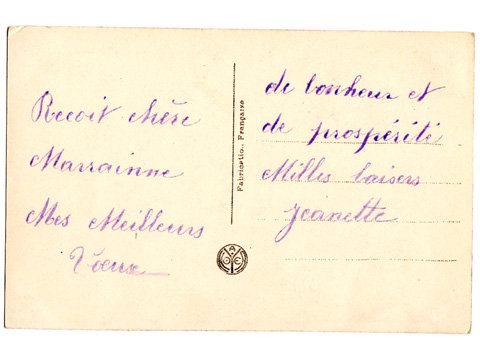 Recoit chère
Marrainne
Mes Meilleurs
Vœux
Fabrication Française
de bonheur et
de prospérité
Milles baisers
Jeanette